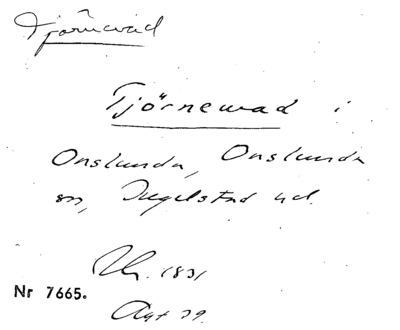 Tjörnevad
Tjörnewad i
Onslunda, Onslunda
sn, Ingelstad hd.
Nr 7665.